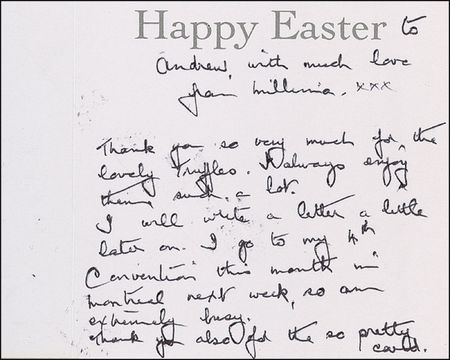 Happy Easter to
Andrew, with much love
from Millicent. xxx
Thank you so very much for the
lovely truffles. I always enjoy
them such a lot.
I will write a letter a little
later on. I go to my 4th
Convention this month in
Montreal next week, so am
extremely busy.
Thank you also for the so pretty
card.